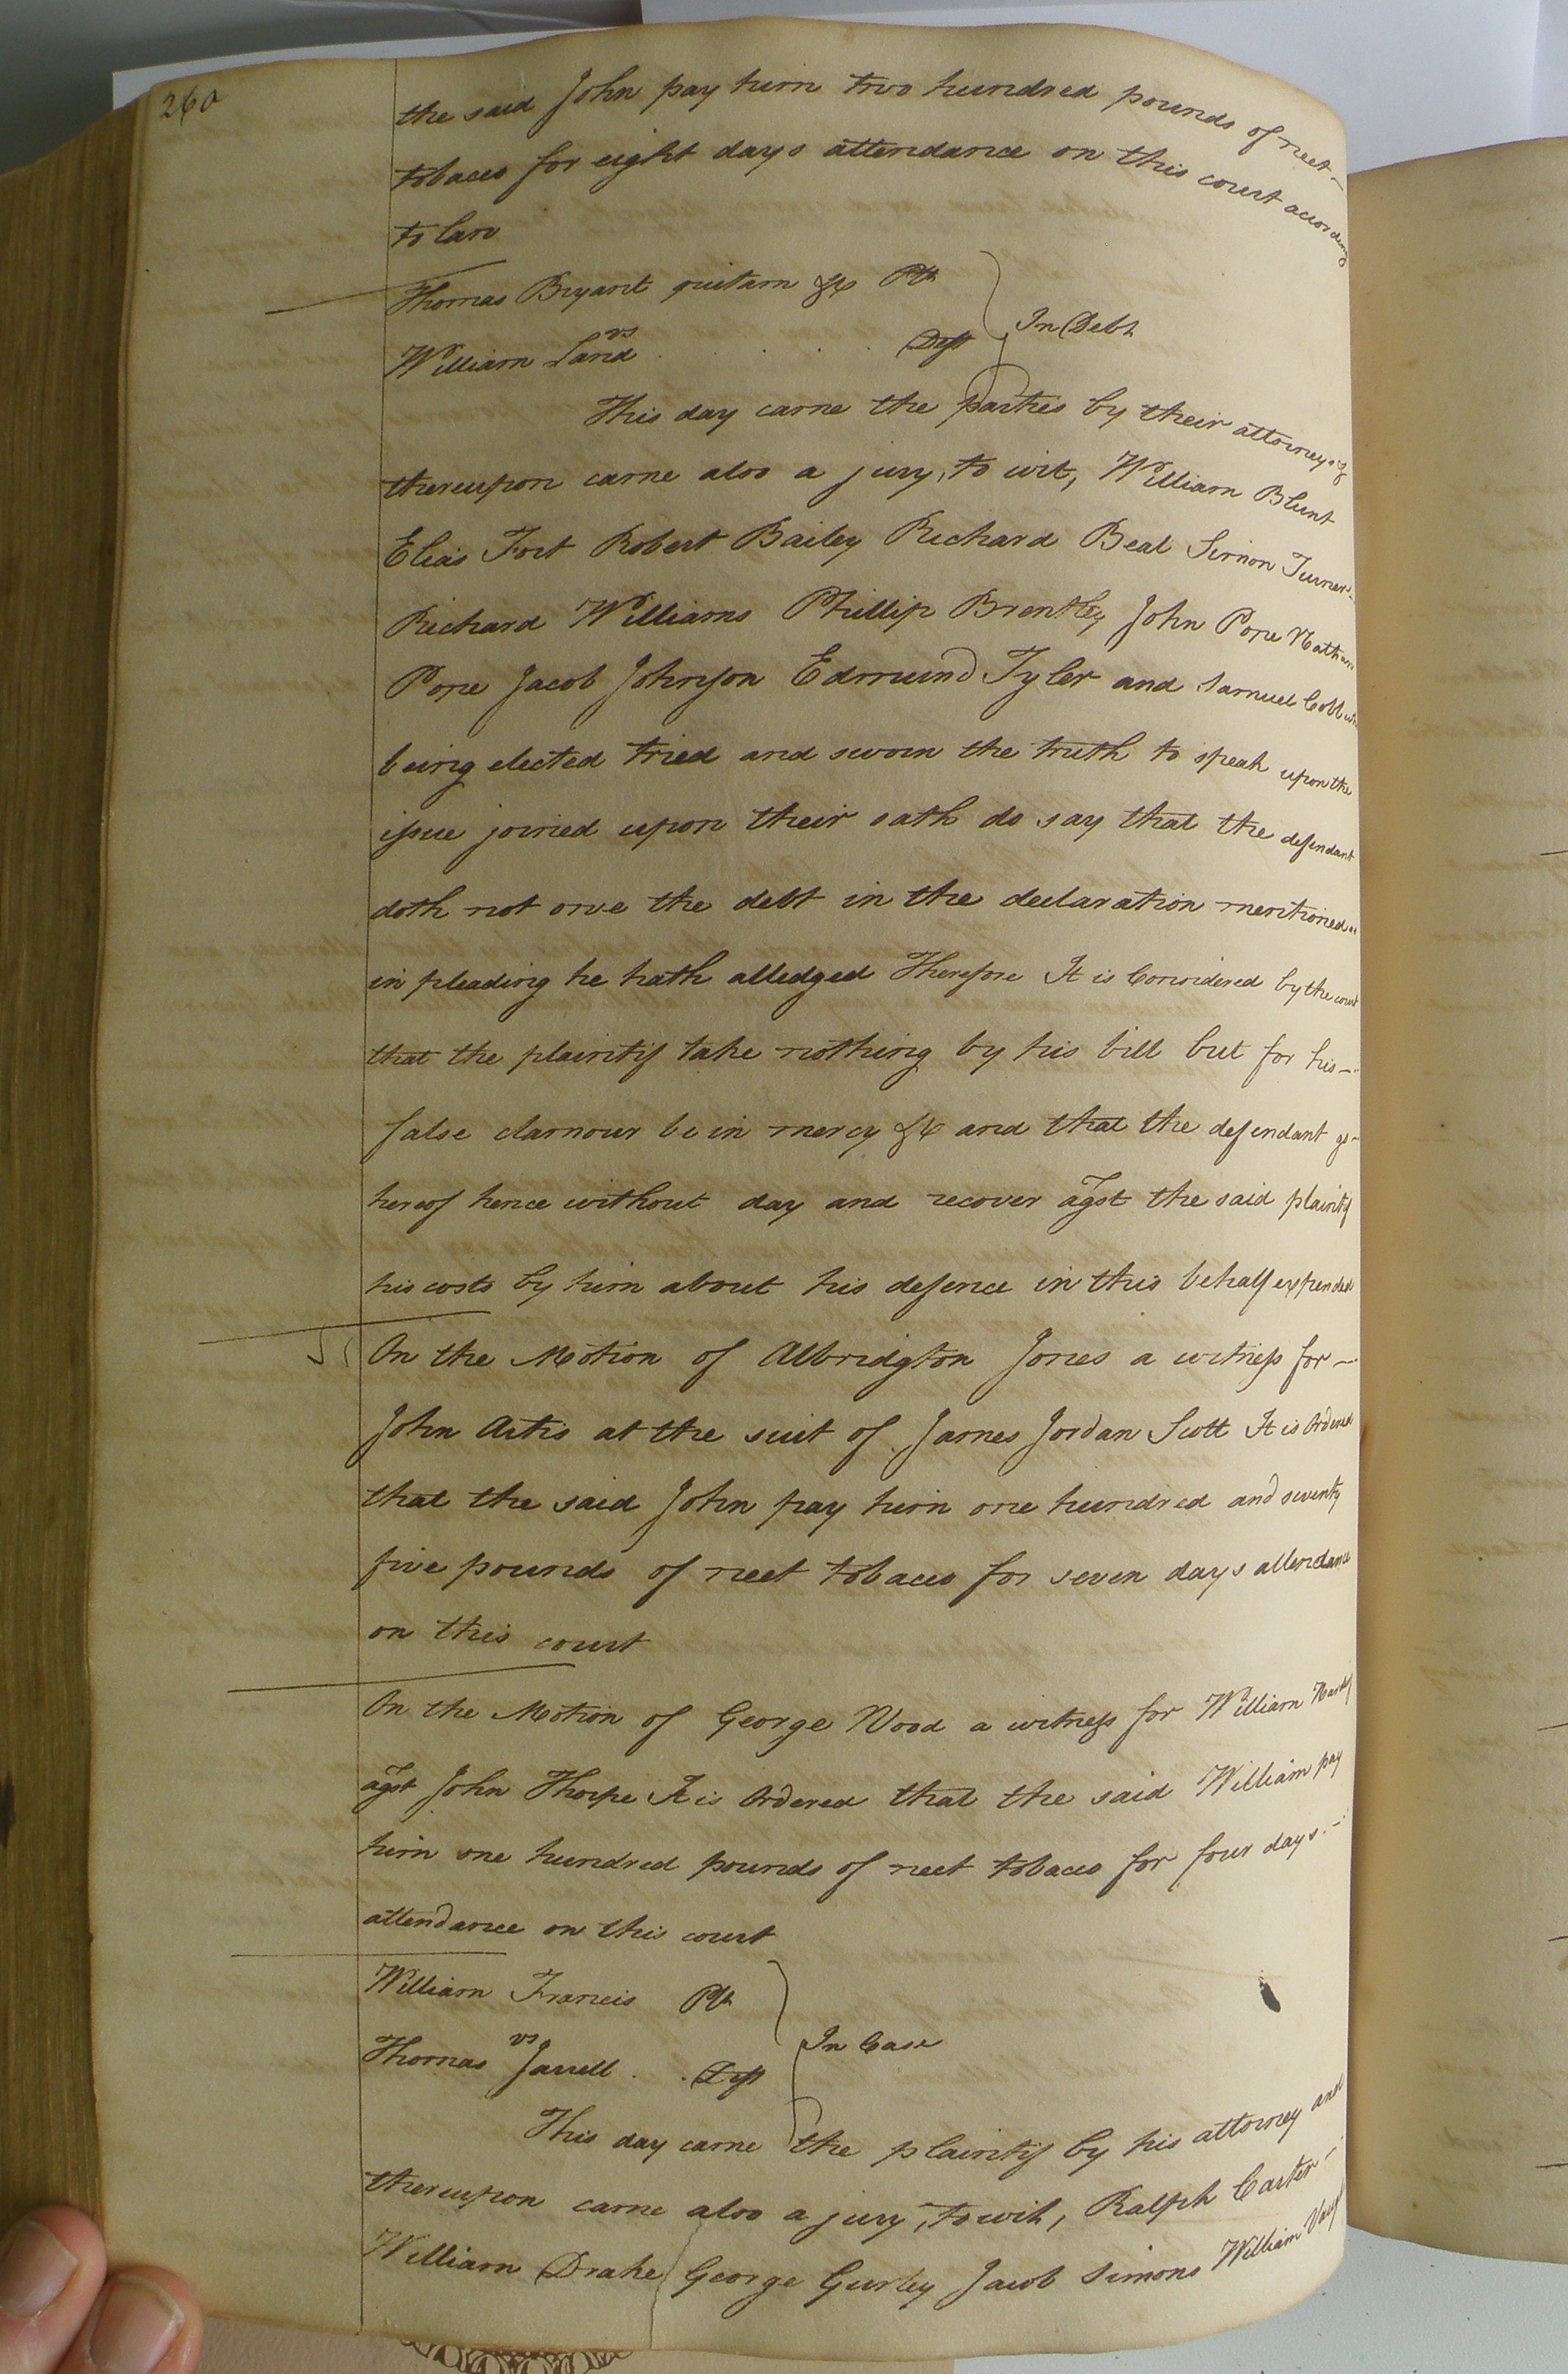 260
the said John pay him two hundred pounds of neet
tobacco for eight days attendance on this court according
to law
Thomas Bryant quitam &c Plt
vs
William Land . . . . Deft
In Debt
This day came the parties by their attorneys &
thereupon came also a jury, to wit, William Blunt
Elias Fort Robert Bailey Richard Beal Simon Turner
Richard Williams Phillip Brentley John Pope Nathan
Pope Jacob Johnson Edmund Tyler and Samuel Cobb who
being elected tried and sworn the truth to speak upon the
issue joined upon their oath do say that the defendant
doth not owe the debt in the declaration mentioned as
in pleading he hath alledged Therefore It is Considered by the court
that the plaintif take nothing by his bill but for his
false clamour be in mercy &c and that the defendant go
hereof hence without day and recover agst the said plaintif
his costs by him about his defence in this behalf expended
On the Motion of Albridgton Jones a witness for
John Artis at the suit of James Jordan Scott It is Ordered
that the said John pay him one hundred and seventy
five pounds of neet tobacco for seven days attendance
on this court
On the Motion of George Wood a witness for William
agst John Thorpe It is Ordered that the said William pay
him one hundred pounds of neet tobacco for four days
attendance on this court
William Francis Plt
vs
Thomas Jarrell . . Deft
In Case
This day came the plaintif by his attorney and
thereupon came also a jury, to wit, Ralph Carter
William Drake George Gurley Jacob Simons William